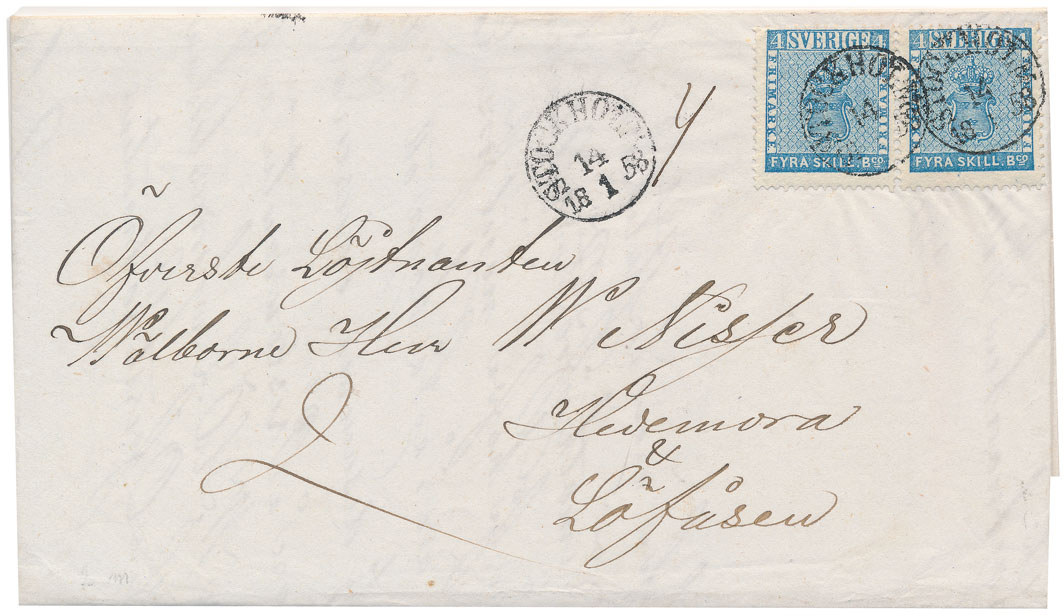 4 SVERIGE 4
FRIMÄRKE FRIMÄRKE
FYRA SKILL. Bco
4 SVERIGE 4
FRIMÄRKE
FYRA SKILL. Bco
STOCKHOLM
14
1
18 58
STOCKHOLM
14
STOCKHOLM
14
Öfverste Löjtnanten
Wälborne Herr W Nisser
2
Hedemora
&
Löfåsen